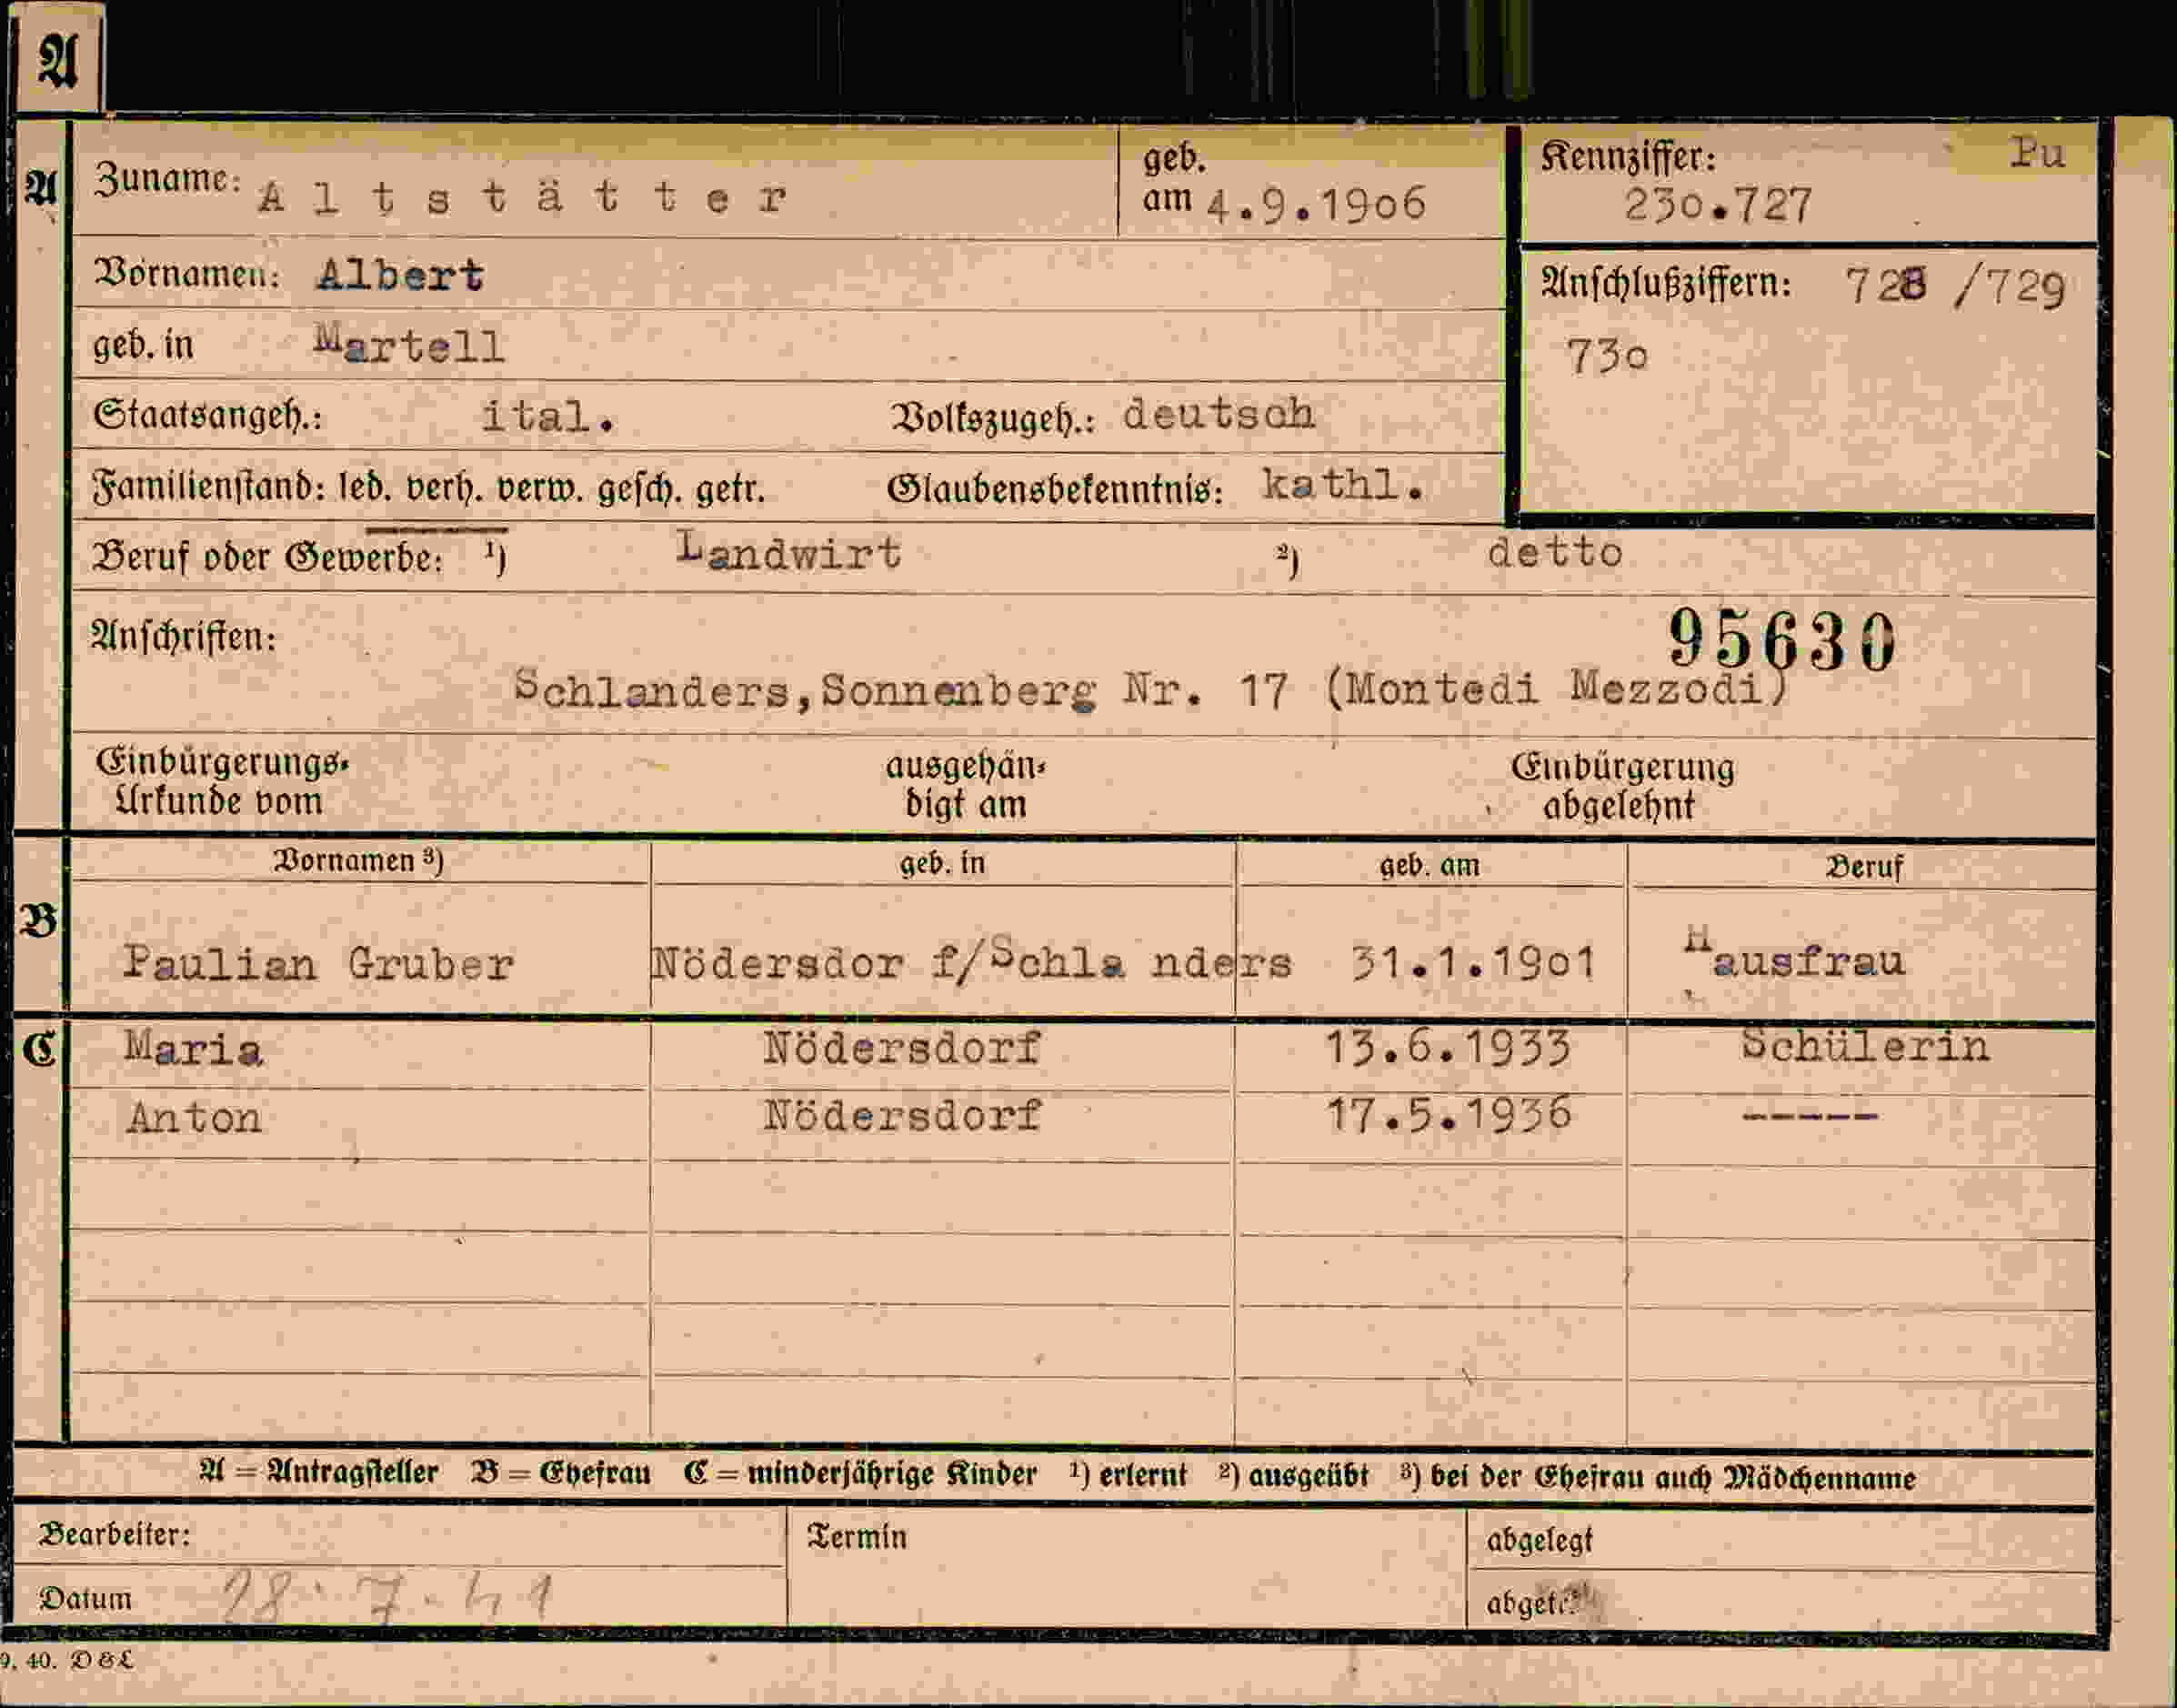 A
A
Zuname: Altstätter
geb.
am 4.9.1906
Kennziffer: Pu
230.727
Vornamen: Albert
Anschlußziffern: 728 /729
730
geb. in Martell
Staatsangeh.: ital. Volkszugeh.: deutsch
Familienstand: led. verh. verw. gesch. getr. Glaubensbekenntnis: kathl.
Beruf oder Gewerbe: 1) Landwirt 2) detto
Anschriften: 95630
Schlanders,Sonnenberg Nr. 17 (Montedi Mezzodi)
Einbürgerungs-
Urkunde vom
ausgehän-
digt am
Einbürgerung
abgelehnt
Vornamen 3) geb. in geb. am Beruf
B
Paulian Gruber Nödersdor f/Schla nders 31.1.1901 Hausfrau
C Maria Nödersdorf 13.6.1933 Schülerin
Anton Nödersdorf 17.5.1936 -----
A = Antragsteller B = Ehefrau C = minderjährige Kinder 1) erlernt 2) ausgeübt 3) bei der Ehefrau auch Mädchenname
Bearbeiter: Termin abgelegt
Datum 28.7.41
9. 40. D&L